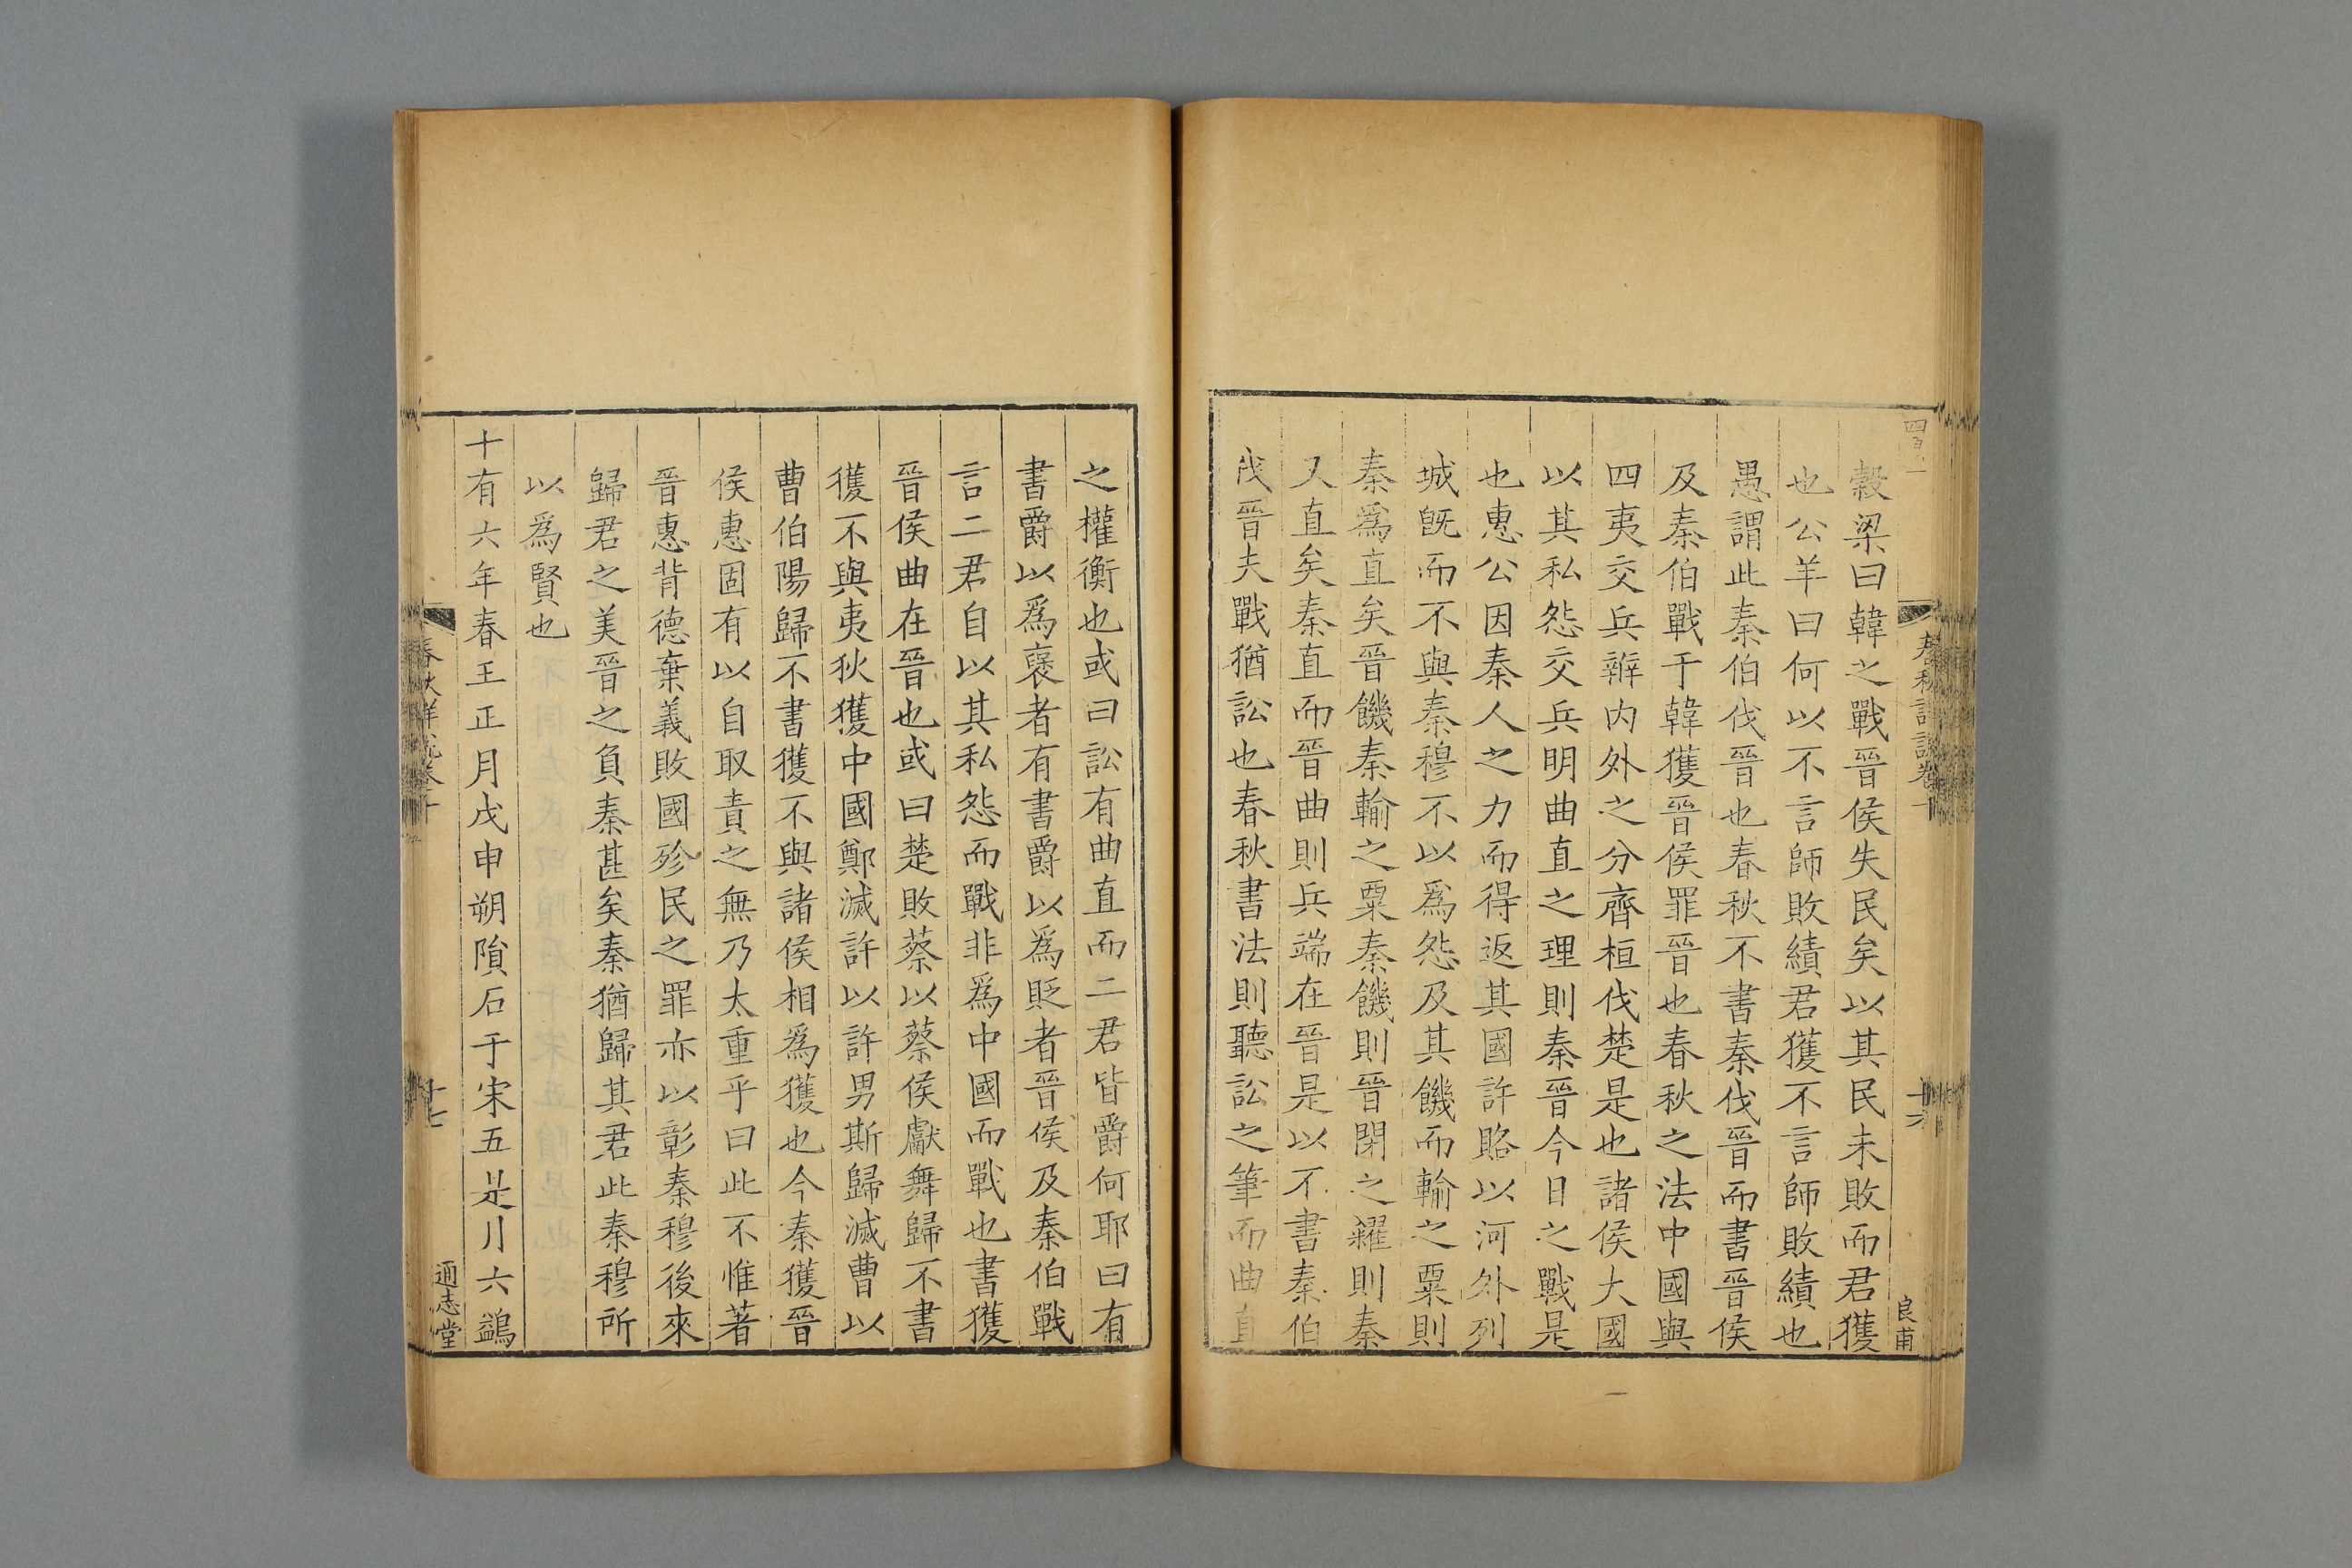 穀梁曰韓之戰晉侯失民矣以其民未敗而君獲
也公羊曰何以不言師敗績君獲不言師敗績也
愚謂此秦伯伐晉也春秋不書秦伐晉而書晉侯
及秦伯戰于韓獲晉侯罪晉也春秋之法中國與
四夷交兵辨内外之分齊桓伐楚是也諸侯大國
以其私怨交兵明曲直之理則秦晉今日之戰是
也惠公因秦人之力而得返其國許賂以河外列
城旣而不與秦穆不以爲怨及其饑而輸之粟則
秦爲直矣晉饑秦輸之粟秦饑則晉閉之糴則秦
又直矣秦直而晉曲則兵端在晉是以不書秦伯
伐晉夫戰猶訟也春秋書法則聽訟之筆而曲直
之權衡也或曰訟有曲直而二君皆爵何耶曰有
書爵以爲襃者有書爵以爲貶者晉侯及秦伯戰
言二君自以其私怨而戰非爲中國而戰也書獲
晉侯曲在晉也或曰楚敗蔡以蔡侯獻舞歸不書
獲不與夷狄獲中國鄭滅許以許男斯歸滅曹以
曹伯陽歸不書獲不與諸侯相爲獲也今秦獲晉
侯惠固有以自取責之無乃太重乎曰此不惟著
晉惠背德棄義敗國殄民之罪亦以彰秦穆後來
歸君之美晉之負秦甚矣秦猶歸其君此秦穆所
以爲賢也
十有六年春王正月戊申朔隕石于宋五是月六鷁
春秋詳說卷十
十七
通志堂
春秋詳說卷十
十六
良甫